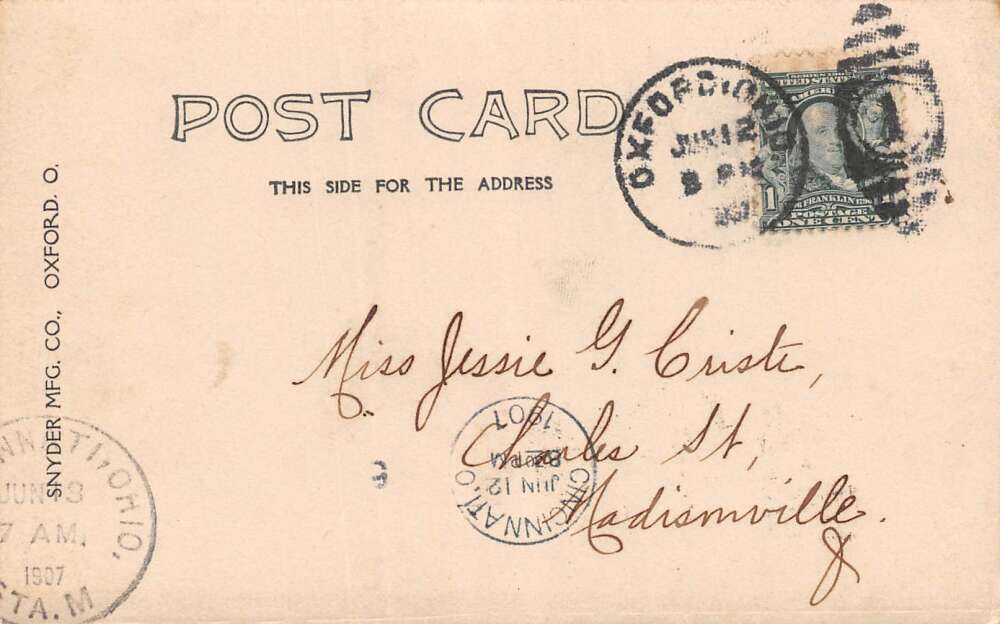 POST CARD
THIS SIDE FOR THE ADDRESS
SNYDER MFG. CO., OXFORD. O.
OXFORD, OHIO
JUN 12
SERIES 1902
UNITED STATES
AMERICA
1
FRANKLIN
POSTAGE
ONE CENT
1
Miss Jessie G. Criste,
Charles St,
Madisonville.
O
CINCINNATI, O.
JUN 12
8 PM
1907
3
NNATI, OHIO.
JUN 13
7 AM.
1907
STA. M